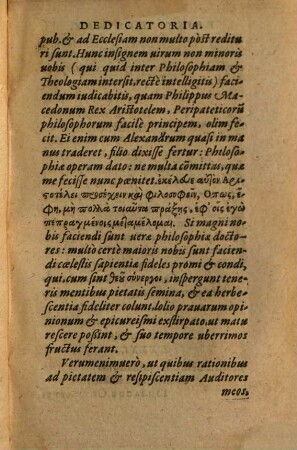 DEDICATORIA.
pub. & ad Ecclesiam non multo pòst redituri
sunt. Hunc insignem uirum non minoris
uobis (qui quid inter Philosophiam &
Theologiam intersit, rectè intelligitis) faciendum
iudicabitis, quam Philippus Macedonum
Rex Aristotelem, Peripateticorũ
philosophorum facilè principem, olim fecit.
Ei enim cum Alexandrum quasi in manus
traderet, filio dixisse fertur: Philosophiæ
operam dato: ne multa cõmittas, quæ
me fecisse nunc pœnitet. ἐκέλευε αὐτὸν Ἀριςοτέλει
προσέχειν καὶ φιλοσοφεῖν, Ὅπως,
ἔφη, μὴ πολλὰ τοιαῦτα πράξῃς, ἐφ' οἷς ἐγὼ
πεπραγμένοις μεταμέλομαι. St magni nobis
faciendi sunt ueræ philosophiæ doctores:
multo certè maioris nobis sunt faciendi
cœlestis sapientiæ fideles promi & condi,
qui, cum sint θεοῦ συνεργοὶ, inspergunt teneris
mentibus pietatis semina, & ea herbescentia
fideliter colunt, lolio prauarum opinionum
& epicureismi exstirpato, ut maturescere
poßint, & suo tempore uberrimos
fructus ferant.
Verumenimuerò, ut quibus rationibus
ad pietatem & resipiscentiam Auditores
meos,